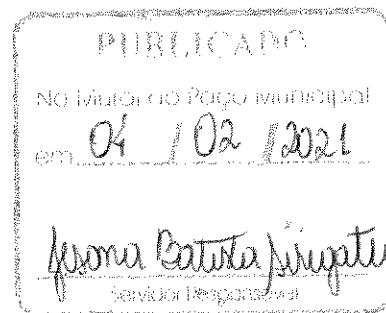 PUBLICADO
No Mural do Paço Municipal
em 04 / 02 / 2021
Batista
Servidor Responsável